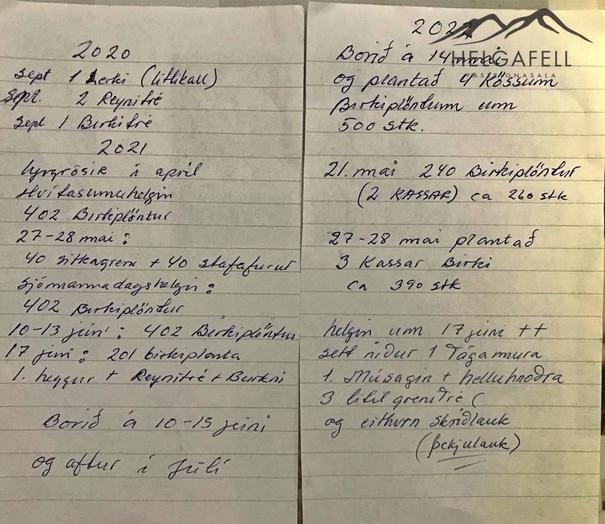 2020
Sept 1 Lerki (litlikall)
Sept. 2 Reynitré
Sept 1 Birkitré
2021
í apríl
Hvítasunnuhelgin
402 Birkiplöntur
27-28 maí :
40 sitkagreni + 40 stafafurur
Sjómannadagshelgin :
402 Birkiplöntur
10-13 júní : 402 Birkiplöntur
17 júní : 201 birkiplanta
1. heggur + Reynitré + Berkni
Borið á 10-15 júní
og aftur í Júlí
2022
Borið á 14 maí
og plantað 4 Kössum
Birkiplöntum um
500 stk.
21. maí 240 Birkiplöntur
(2 KASSAR) ca 260 stk
27-28 maí plantað
3 Kassar Birki
ca 390 stk
helgin um 17 júní ++
sett niður 1 Tágamura
1. Músagin + helluhnoðra
3 lítil grenitré (
og eitthvn skriðlauk
(Þekjulauk)
HELGAFELL
FASTEIGNASALA